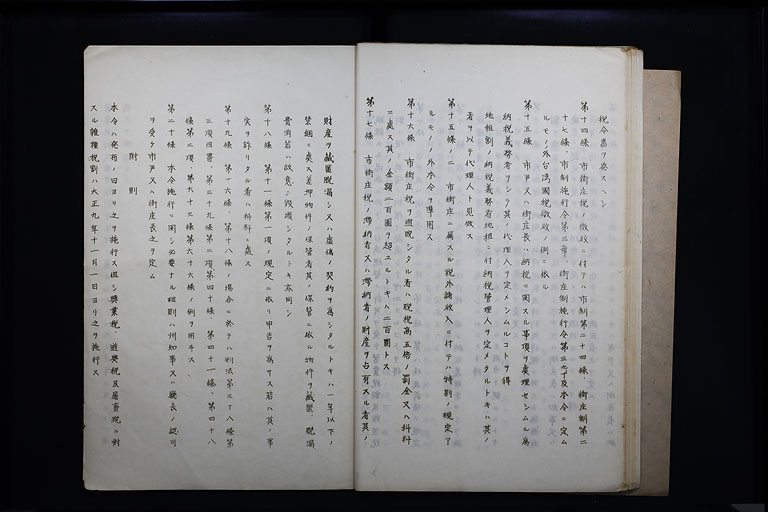 税令書ヲ発スヘシ
第十四條 市街庄税ノ徴収ニ付テハ市制第二十四條、街庄制第二
十七條、市制施行令第三章、街庄制施行令第三章及本令ニ定ム
ルモノノ外台湾國税徴収ノ例ニ依ル
第十五條 市尹又ハ街庄長ハ納税ニ関スル事項ヲ處理セシムル為
納税義務者ヲシテ其ノ代理人ヲ定メシムルコトヲ得
地租割ノ納税義務者地租ニ付納税管理人ヲ定メタルトキハ其ノ
者ヲ以テ代理人ト見做ス
第十五條ノ二 市街庄ニ属スル税外諸收入ニ付テハ特別ノ規定ア
ルモノノ外本令ヲ準用ス
第十六條 市街庄税ヲ逋脱シタル者ハ脱税高五倍ノ罰金又ハ科料
ニ處ス其ノ金額二百圓ヲ超エルトキハ二百圓トス
第十七條 市街庄税ノ滞納者又ハ滞納者ノ財産ヲ占有スル者其ノ
財産ヲ藏匿脱漏シ又ハ虚偽ノ契約ヲ為シタルトキハ一年以下ノ
禁錮ニ處ス差押物件ノ保管者其ノ保管ニ係ル物件ヲ藏匿、脱漏
費消若ハ故意ニ毀損シタルトキ亦同シ
第十八條 第十一條第一項ノ規定ニ依リ申告ヲ為サス若ハ其ノ事
実ヲ詐リタル者ハ科料ニ處ス
第十九條 第十六條、第十八條ノ場合ニ於テハ刑法第三十八條第
三項但書、第三十九條第二項第四十條、第四十一條、第四十八
條第二項、第六十三條第六十六條ノ例ヲ用ヰス
第二十條 本令施行ニ関シ必要ナル細則ハ州知事又ハ廳長ノ認可
ヲ受ケ市尹又ハ街庄長之ヲ定ム
附則
本令ハ発布ノ日ヨリ之ヲ施行ス但シ興業税、遊興税及屠畜税ニ対
スル雑種税割ハ大正九年十一月一日ヨリ之ヲ施行ス